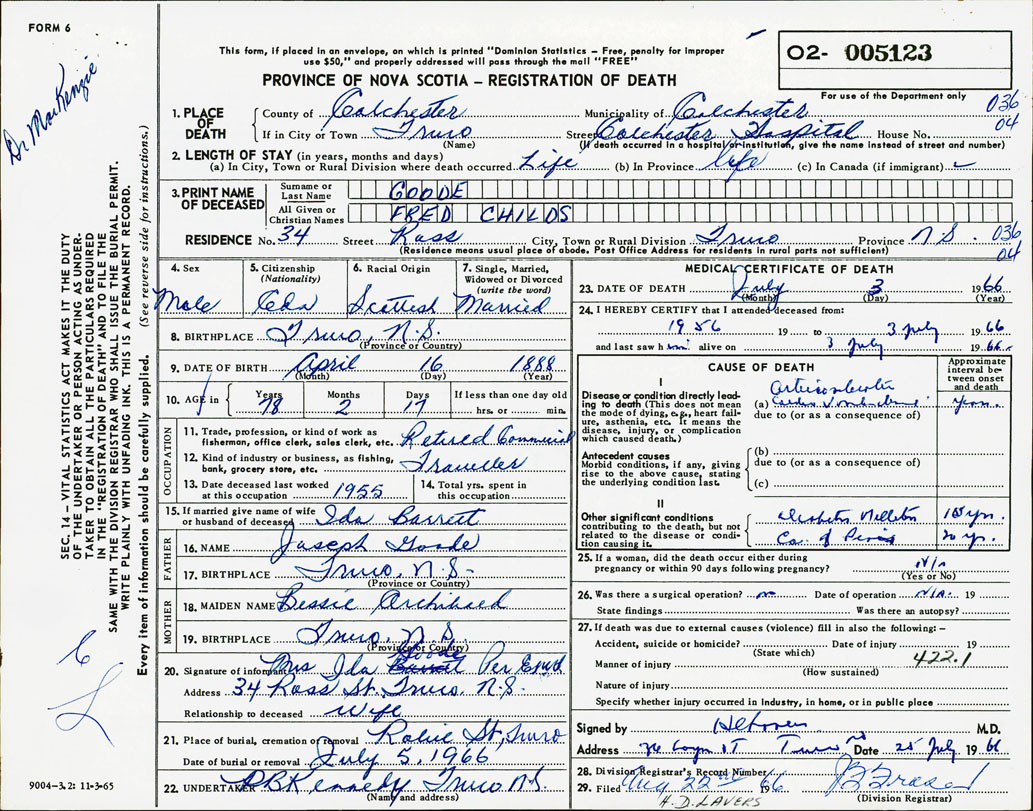 FORM 6
Dr. MacKenzie
This form, if placed in an envelope, on which is printed "Dominion Statistics - Free, penalty for improper
use $50," and properly addressed will pass through the mail "FREE"
O2- 005123
For use of the Department only
PROVINCE OF NOVA SCOTIA - REGISTRATION OF DEATH
036
04
1. PLACE OF DEATH
County of Colchester Municipality of Colchester
If in City or Town Truro Street Colchester Hospital House No.
(Name) (If death occurred in a hospital or institution, give the name instead of street and number)
2. LENGTH OF STAY (in years, months and days)
(a) In City, Town or Rural Division where death occurred Life (b) In Province Life (c) In Canada (if immigrant)
3. PRINT NAME OF DECEASED
Surname or Last Name GOODE
All Given or Christian Names FRED CHILDS
RESIDENCE No. 34 Street Ross City, Town or Rural Division Truro Province N S. 036
04
(Residence means usual place of abode. Post Office Address for residents in rural parts not sufficient)
4. Sex 5. Citizenship (Nationality) 6. Racial Origin 7. Single, Married, Widowed or Divorced (write the word)
Male Cda Scottish Married
8. BIRTHPLACE Truro, N.S.
(Province or Country)
9. DATE OF BIRTH April 16 1888
(Month) (Day) (Year)
10. AGE in Years Months Days If less than one day old
78 2 17 hrs. or min.
OCCUPATION
11. Trade, profession, or kind of work as
fisherman, office clerk, sales clerk, etc. Retired Commercial
12. Kind of industry or business, as fishing,
bank, grocery store, etc. Traveller
13. Date deceased last worked
at this occupation 1955
14. Total yrs. spent in
this occupation
15. If married give name of wife
or husband of deceased Ida Barrett
FATHER
16. NAME Joseph Goode
17. BIRTHPLACE Truro, N.S.
(Province or Country)
MOTHER
18. MAIDEN NAME Bessie Archibald
19. BIRTHPLACE Truro, N.S.
(Province or Country)
20. Signature of informant Mrs Ida Goode Barrett Per
Address 34 Ross St. Truro, N.S.
Relationship to deceased Wife
21. Place of burial, cremation or removal Robie St, Truro
Date of burial or removal July 5, 1966
22. UNDERTAKER Kennedy Truro N.S.
(Name and address)
MEDICAL CERTIFICATE OF DEATH
23. DATE OF DEATH July 3 1966
(Month) (Day) (Year)
24. I HEREBY CERTIFY that I attended deceased from:
1956 19 to 3 July 1966
and last saw him alive on 3 July 1966
CAUSE OF DEATH
Approximate interval between onset and death
I
Disease or condition directly leading to death (This does not mean
the mode of dying, e.g., heart failure, asthenia, etc. It means the
disease, injury, or complication
which caused death.)
(a)
due to (or as a consequence of)
Antecedent causes
Morbid conditions, if any, giving
rise to the above cause, stating
the underlying condition last.
(b)
due to (or as a consequence of)
(c)
II
Other significant conditions
contributing to the death, but not
related to the disease or condition causing it.
Diabetes Mellitus
Ca. of Penis 20 yrs.
25. If a woman, did the death occur either during
pregnancy or within 90 days following pregnancy? N/A
(Yes or No)
26. Was there a surgical operation? no Date of operation N/A. 19
State findings Was there an autopsy?
27. If death was due to external causes (violence) fill in also the following: -
Accident, suicide or homicide? Date of injury 19
(State which) 422.1
Manner of injury
(How sustained)
Nature of injury
Specify whether injury occurred in Industry, in home, or in public place
Signed by M.D.
Address Date 25 July 1966
28. Division Registrar's Record Number
29. Filed Aug 22nd 1966
(Division Registrar)
H.D. LAVERS
SEC. 14 - VITAL STATISTICS ACT MAKES IT THE DUTY
OF THE UNDERTAKER OR PERSON ACTING AS UNDER-
TAKER TO OBTAIN ALL THE PARTICULARS REQUIRED
IN THE "REGISTRATION OF DEATH" AND TO FILE THE
SAME WITH THE DIVISION REGISTRAR WHO SHALL ISSUE THE BURIAL PERMIT.
WRITE PLAINLY WITH UNFADING INK. THIS IS A PERMANENT RECORD.
Every item of information should be carefully supplied. (See reverse side for instructions.)
9004-3.2: 11-3-65